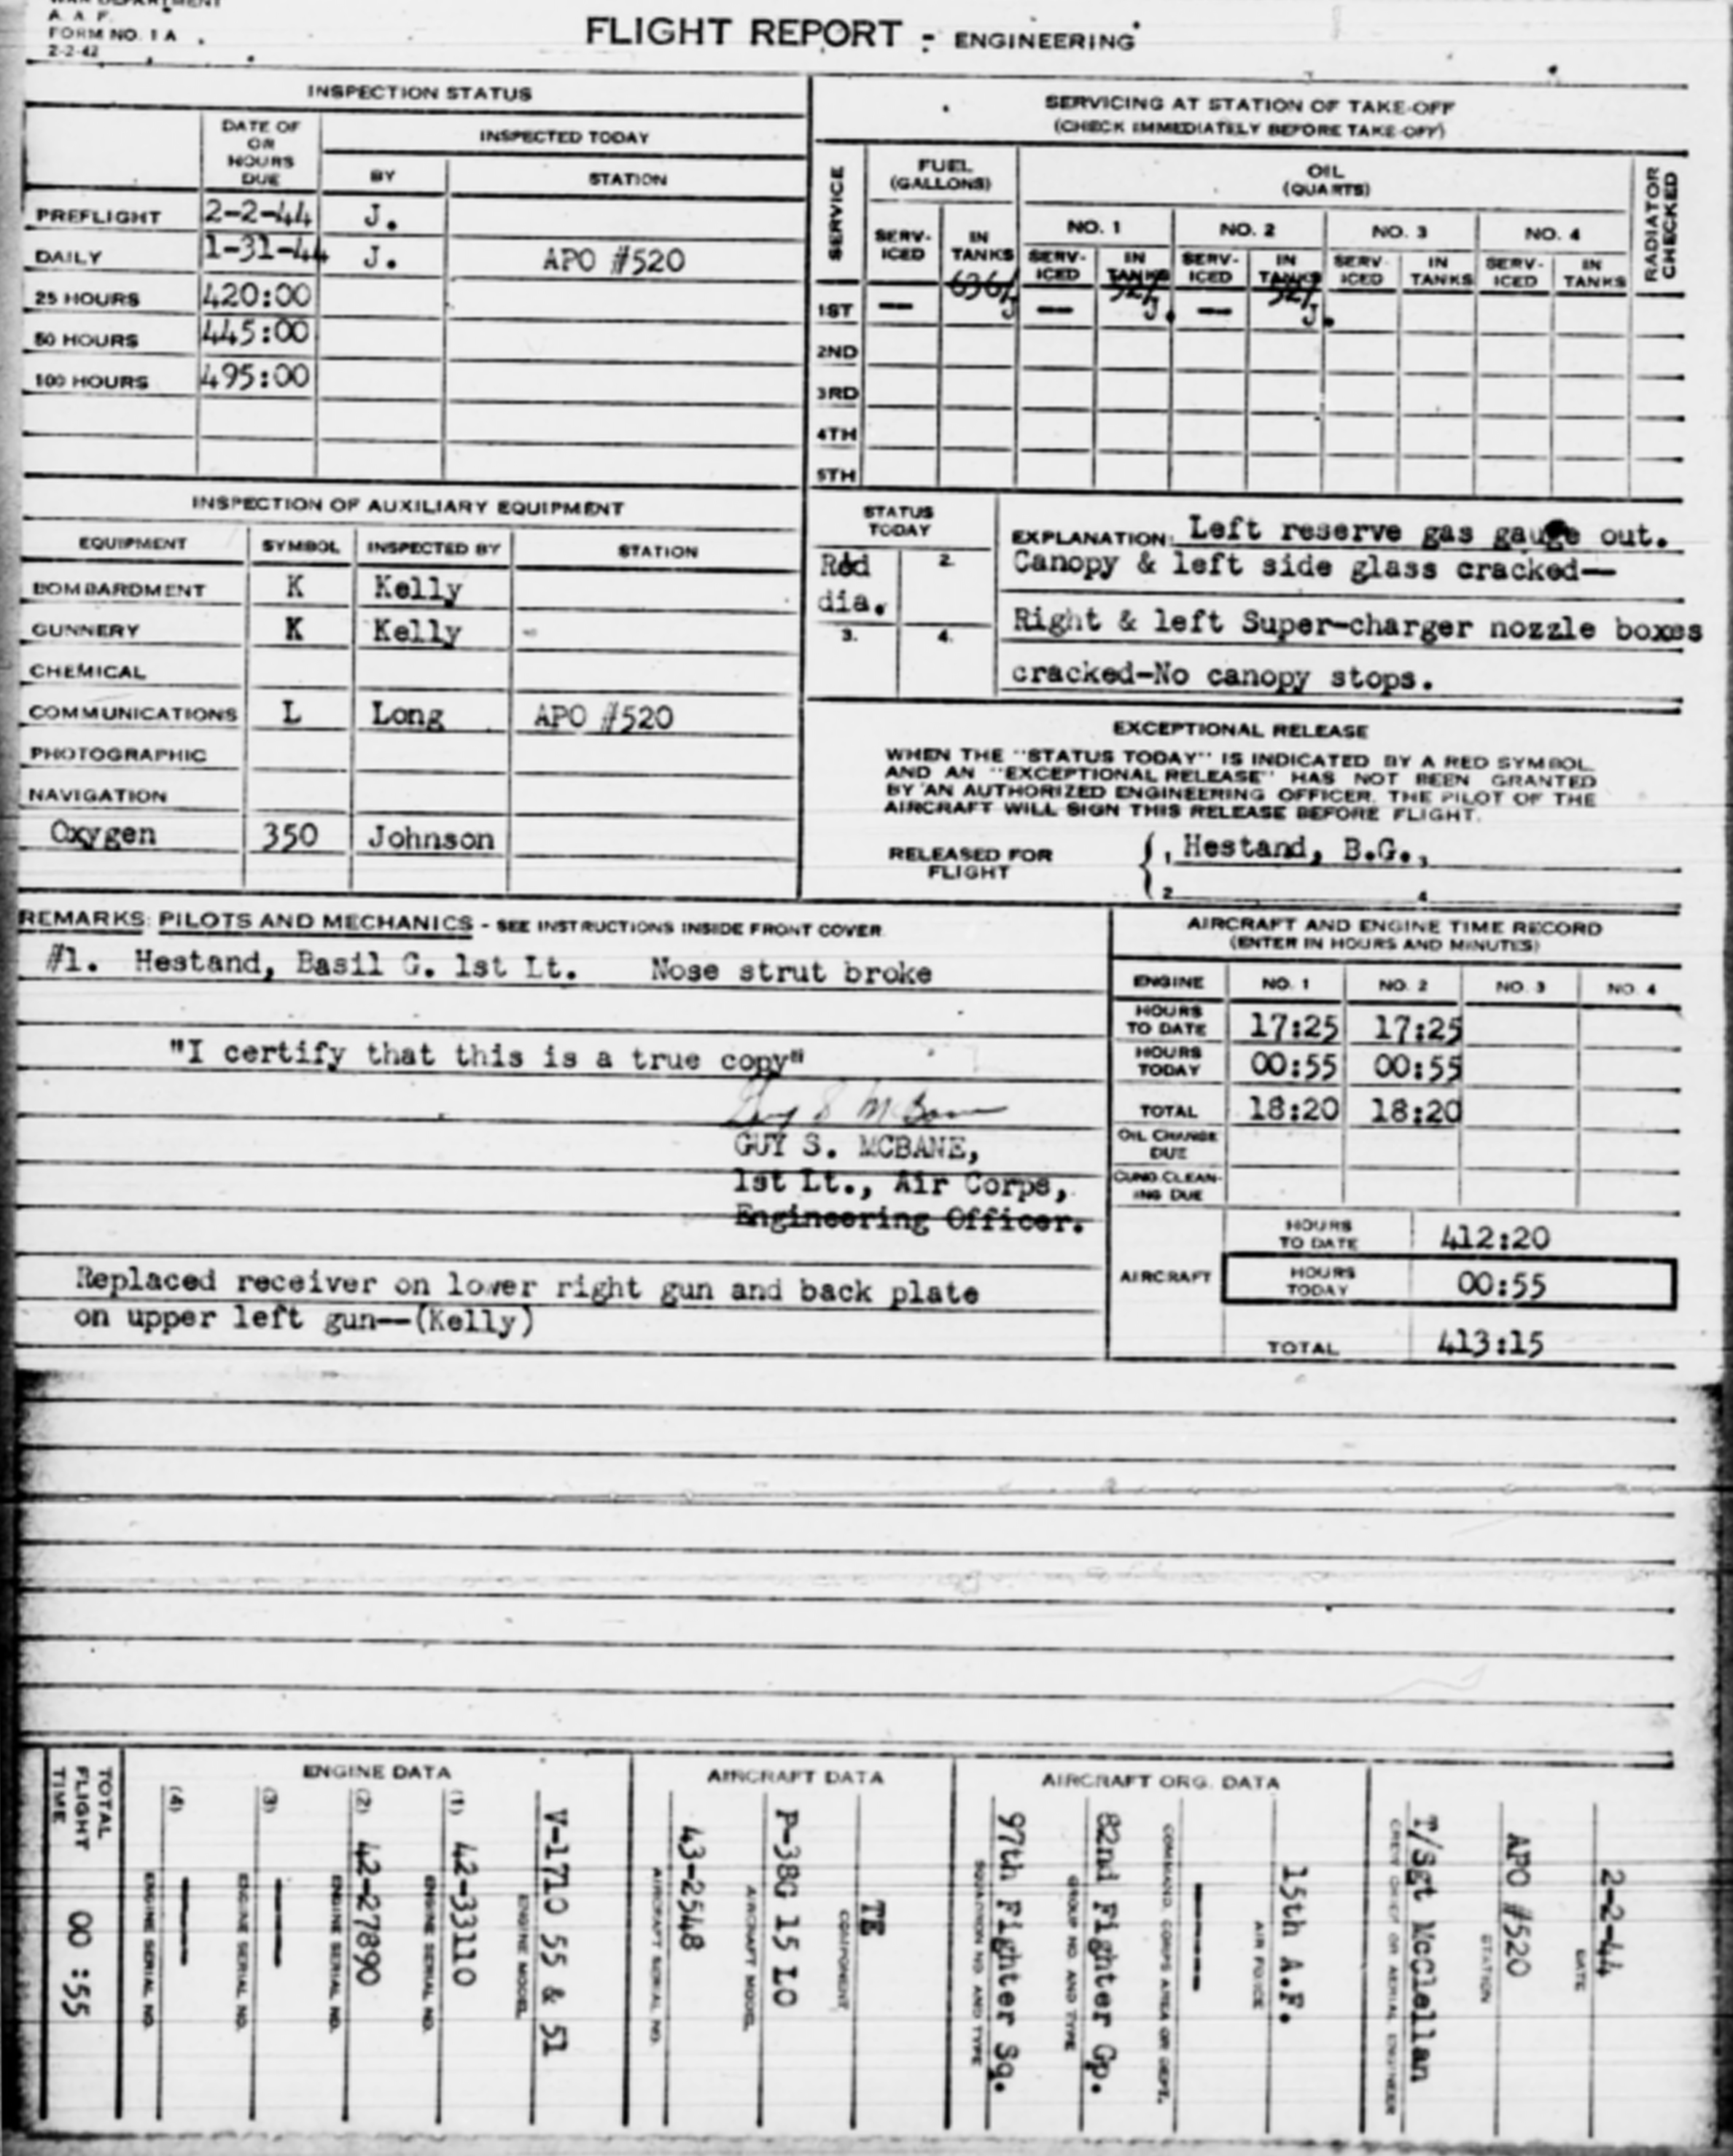 WAR DEPARTMENT
A. A. F.
FORM NO. 1 A
2-2-42
FLIGHT REPORT - ENGINEERING
INSPECTION STATUS
DATE OF OR HOURS DUE
INSPECTED TODAY
BY STATION
PREFLIGHT 2-2-44 J.
DAILY 1-31-44 J. APO #520
25 HOURS 420:00
50 HOURS 445:00
100 HOURS 495:00
SERVICING AT STATION OF TAKE-OFF
(CHECK IMMEDIATELY BEFORE TAKE-OFF)
SERVICE
FUEL (GALLONS)
OIL (QUARTS)
RADIATOR CHECKED
NO. 1 NO. 2 NO. 3 NO. 4
SERV-ICED IN TANKS SERV-ICED IN TANKS SERV-ICED IN TANKS SERV-ICED IN TANKS SERV-ICED IN TANKS
1ST — 636/J — 52/J. — 52/J.
2ND
3RD
4TH
5TH
INSPECTION OF AUXILIARY EQUIPMENT
EQUIPMENT SYMBOL INSPECTED BY STATION
BOMBARDMENT K Kelly
GUNNERY K Kelly
CHEMICAL
COMMUNICATIONS L Long APO #520
PHOTOGRAPHIC
NAVIGATION
Oxygen 350 Johnson
STATUS TODAY
Red dia. 2.
3. 4.
EXPLANATION: Left reserve gas gauge out.
Canopy & left side glass cracked—
Right & left Super-charger nozzle boxes
cracked-No canopy stops.
EXCEPTIONAL RELEASE
WHEN THE "STATUS TODAY" IS INDICATED BY A RED SYMBOL
AND AN "EXCEPTIONAL RELEASE" HAS NOT BEEN GRANTED
BY AN AUTHORIZED ENGINEERING OFFICER, THE PILOT OF THE
AIRCRAFT WILL SIGN THIS RELEASE BEFORE FLIGHT.
RELEASED FOR FLIGHT
1 Hestand, B.G.,
2 4
REMARKS: PILOTS AND MECHANICS - SEE INSTRUCTIONS INSIDE FRONT COVER
#1. Hestand, Basil G. 1st Lt. Nose strut broke
"I certify that this is a true copy"
Guy S McBane
GUY S. MCBANE,
1st Lt., Air Corps,
Engineering Officer.
Replaced receiver on lower right gun and back plate
on upper left gun—(Kelly)
AIRCRAFT AND ENGINE TIME RECORD
(ENTER IN HOURS AND MINUTES)
ENGINE NO. 1 NO. 2 NO. 3 NO. 4
HOURS TO DATE 17:25 17:25
HOURS TODAY 00:55 00:55
TOTAL 18:20 18:20
OIL CHANGE DUE
CUNO CLEAN-ING DUE
AIRCRAFT
HOURS TO DATE 412:20
HOURS TODAY 00:55
TOTAL 413:15
2-2-44
DATE
APO #520
STATION
T/Sgt McClellan
CREW CHIEF OR AERIAL ENGINEER
AIRCRAFT ORG. DATA
15th A.F.
AIR FORCE
—
COMMAND, CORPS AREA OR DEPT.
82nd Fighter Gp.
GROUP NO. AND TYPE
97th Fighter Sq.
SQUADRON NO. AND TYPE
AIRCRAFT DATA
TE
COMPONENT
P-38G 15 LO
AIRCRAFT MODEL
43-2548
AIRCRAFT SERIAL NO.
ENGINE DATA
V-1710 55 & 51
ENGINE MODEL
(1) 42-33110
ENGINE SERIAL NO.
(2) 42-27890
ENGINE SERIAL NO.
(3) —
ENGINE SERIAL NO.
(4) —
ENGINE SERIAL NO.
TOTAL FLIGHT TIME 00:55